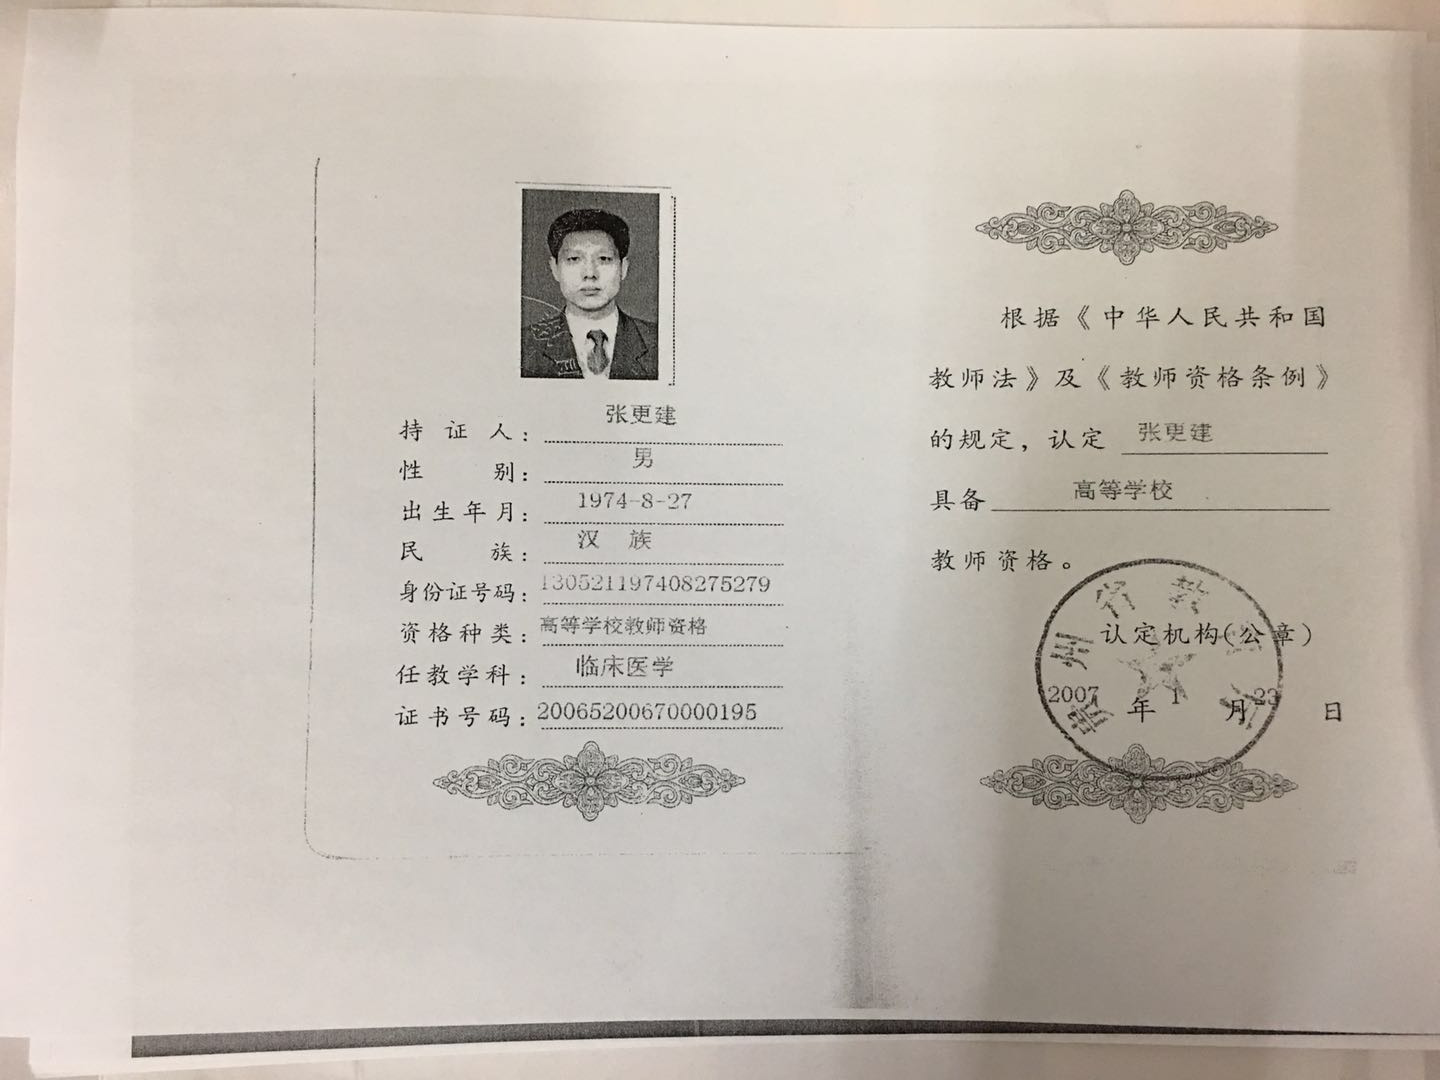 持证人：张更建
性别：男
出生年月：1974-8-27
民族：汉 族
身份证号码：130521197408275279
资格种类：高等学校教师资格
任教学科：临床医学
证书号码：20065200670000195
根据《中华人民共和国
教师法》及《教师资格条例》
的规定，认定 张更建
具备 高等学校
教师资格。
认定机构(公章)
2007年1月23日
州 省 教